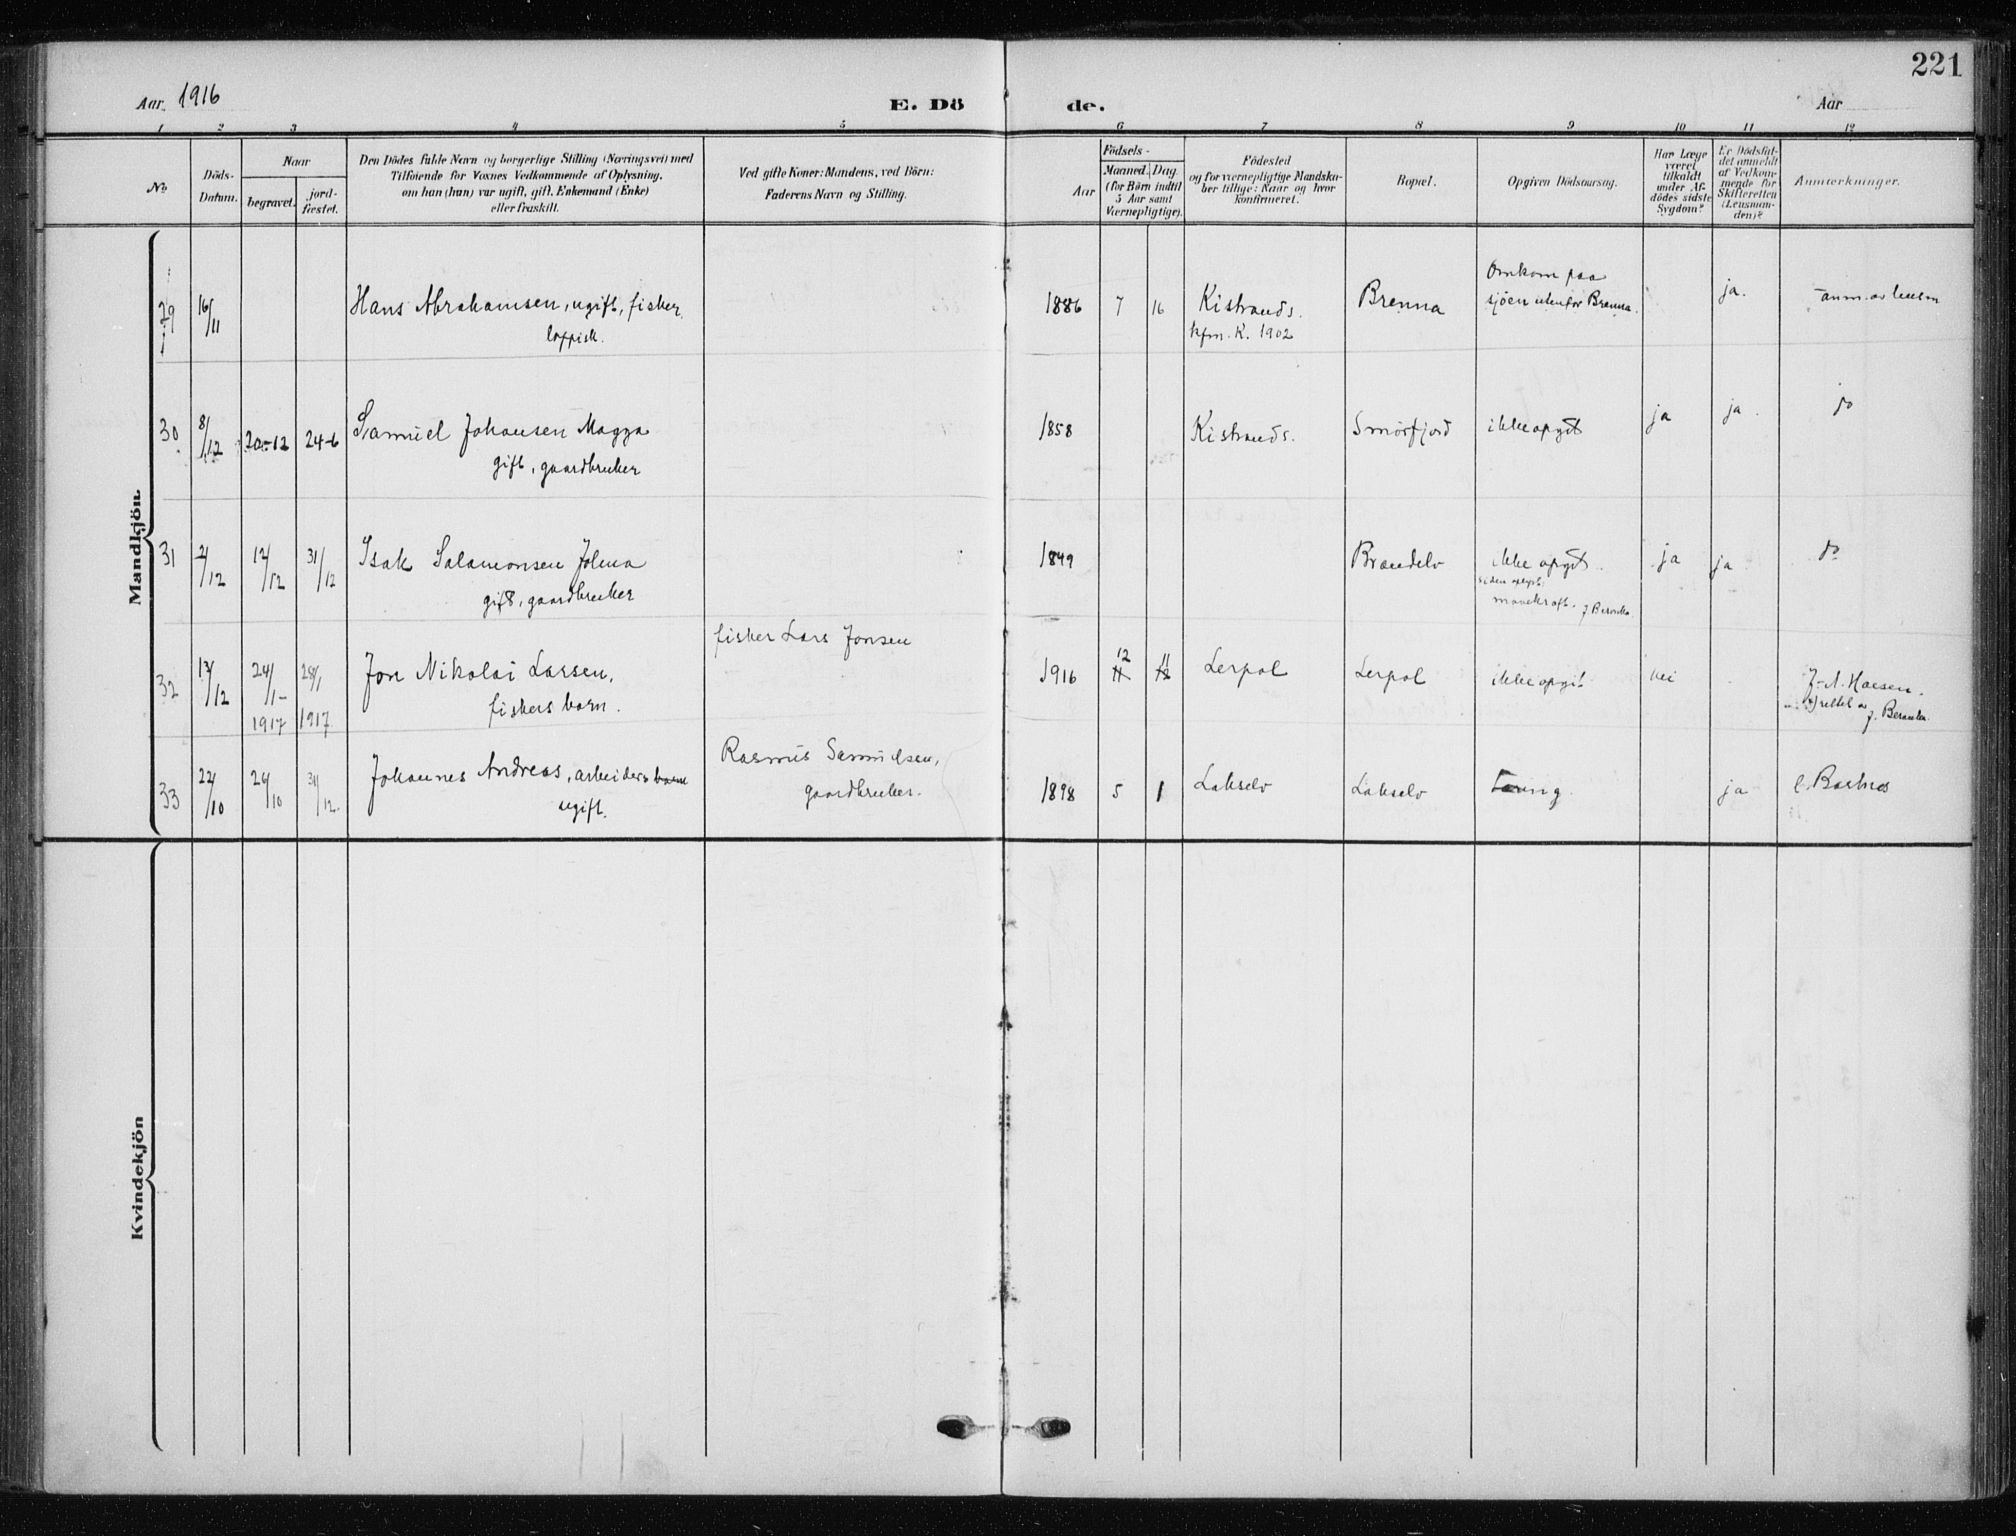 221
Aar 1916
E. Dö de.
Aar
1 2 3 4 5 6 7 8 9 10 11 12
No
Döds-
Datum.
Naar
begravet.
jord-
fæstet.
Den Dödes fulde Navn og borgerlige Stilling (Næringsvei) med
Tilføiende for Voxnes Vedkommende af Oplysning,
om han (hun) var ugift, gift, Enkemand (Enke)
eller fraskilt.
Ved gifte Koner: Mandens, ved Börn:
Faderens Navn og Stilling.
Födsels-
Aar
Maaned. Dag.
(for Börn indtil
5 Aar samt
Værnepligtige).
Födested
og for værnepligtige Mandska-
ber tillige: Naar og hvor
konfirmeret.
Bopæl.
Opgiven Dödsaarsag.
Har Læge
været
tilkaldt
under Af-
dödes sidste
Sygdom?
Er Dödsfal-
det anmeldt
af Vedkom-
mende for
Skifteretten
(Lensman-
den)?
Anmærkninger.
Mandkjön.
29 16/11 Hans Abrahamsen, ugift, fisker, 1886 7 16 Kistrands. Brenna Omkom paa ja.
lappisk. kfm. K. 1902 sjöen utenfor Brenna.
30 8/12 20-12 24-6 Samuel Johansen Magga 1858 Kistrands. Smörfjord ikke opgit ja ja. do
gift, gaardbruker
31 2/12 12/12 31/12 Isak Salamonsen Jolma 1849 Brændelv ikke opgit. ja ja do
gift, gaardbruker
fisker Lars Jonsen
32 13/12 24/1- 1917 28/1 1917 Jon Nikolai Larsen, 1916 12 11 Lerpol Lerpol ikke opgit nei
fiskers barn.
Rasmus Samuelsen,
33 22/10 26/10 31/12 Johannes Andreas, arbeiders barn 1898 5 1 Lakselv Lakselv Tæring ja
ugift. gaardbruker.
Kvindekjön